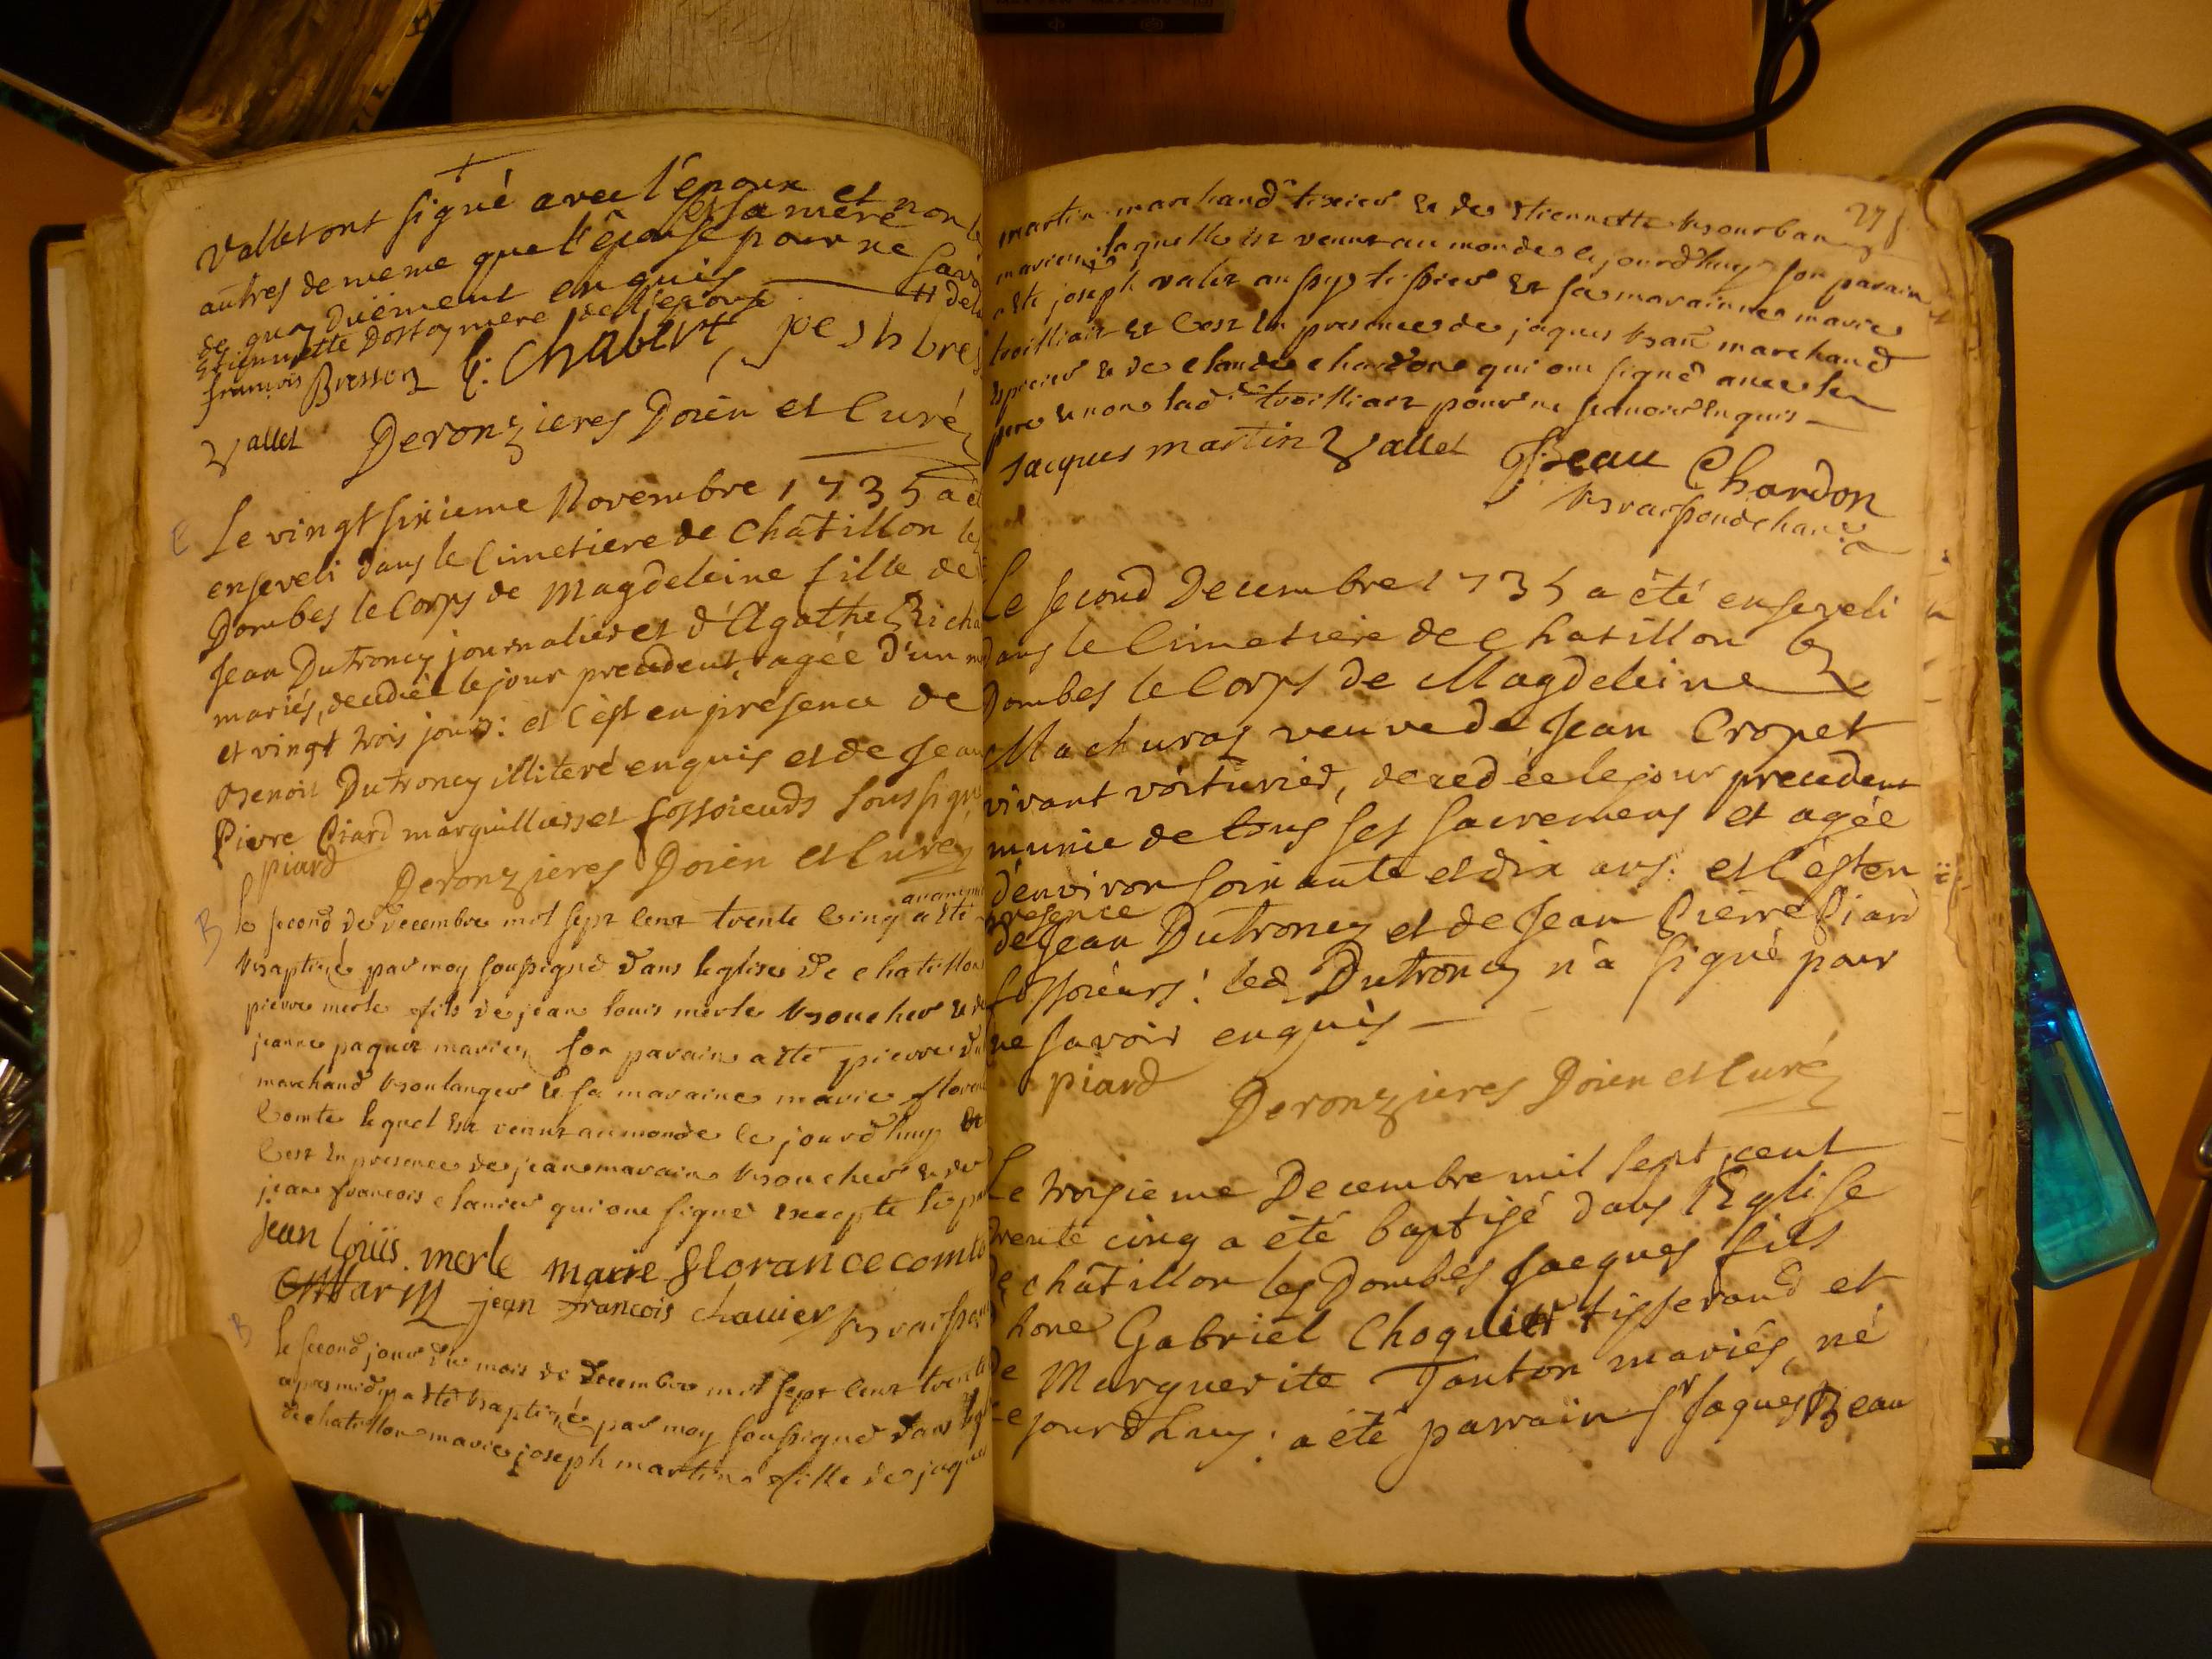 Vallet ont signé avec l'epoux et non les
autres de meme que l'épouse et sa mere pour ne savoir
de quoy duëment enquis
Estiennette Dossoy mere de l'epoux
françois Bresson C. Chabert
Vallet Deronzieres Doïen et Curé
Le vingt sixieme Novembre 1735 a été
enseveli dans le Cimetiere de Chatillon les
Dombes le Corps de Magdeleine fille de
Jean Dutroncy journalier et d'Agathe Richa
mariés, decedée le jour precedent, agée d'un
et vingt trois jours: et c'est en présence de
Benoit Dutroncy illiteré enquis et de Jean
Pierre Piard marguilliers et fossoieurs soussigné
piard Deronzieres Doïen et Curé
B le second de decembre mil sept cent trente cinq a été
baptisé par moy soussigné dans leglise de chatillon
pierre merle fils de jean louis merle boucher et de
jeanne paquet mariés son parain a été pierre
marchand boulanger et sa maraine marie floren
Comte lequel est venut au monde ce jourd'huy et
cest en presence de jean marain boucher et de
jean francois chanier qui ont signé excepté le
jean louis merle marie florance comte
Marin jean francois chavier
B le second jour du mois de decembre mil sept cent trente
apres midy a été baptisée par moy soussigné dans
de chatillon marie joseph martin fille de jaques
275
martin marchand tixier et de etiennette bourban
mariés, laquelle est venut au monde ce jourd'huy son parain
a été joseph valet aussy tissier et sa maraine marie
troilliait et cest en presence de jaques beau marchand
epicier et de claude chardon qui ont signé avec le
pere et non lad.te troilliait pour ne scavoir enquis
Jacques martin Vallet J Beau Chardon
Le second Decembre 1735 a été enseveli
dans le Cimetiere de Chatillon les
Dombes le Corps de Magdeleine
Machuray veuve de Jean Cropet
vivant voiturier, decedée le jour precedent
munie de tous ses sacremens et agée
d'environ soixante et dix ans: et c'est en
presence
de Jean Dutroncy et de Jean Pierre Piard
fossoïeurs: led. Dutroncy n'a signé pour
ne savoir enquis
piard Deronzieres Doïen et Curé
Le troisieme Decembre mil sept cent
trente cinq a été baptisé dans l'Eglise
de chatillon les Dombes Jacques fils
hone Gabriel Choquet tisserand et
de Marguerite Tonton mariés, né
ce jourdhuy: a été parrain Sr Jaques Beau